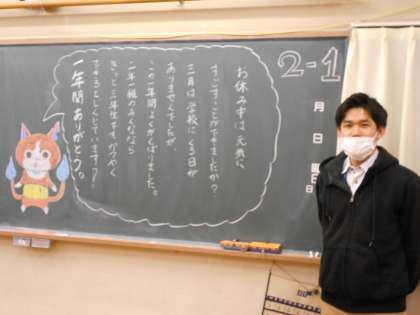 2-1
月
日
曜日
お休み中は元気に
すごすことができましたか?
三月は学校にくる日が
ありませんでしたが、
この一年間よくがんばりました。
二年一組のみんななら
きっと三年生でもかつやく
できると
一年間ありがとう。